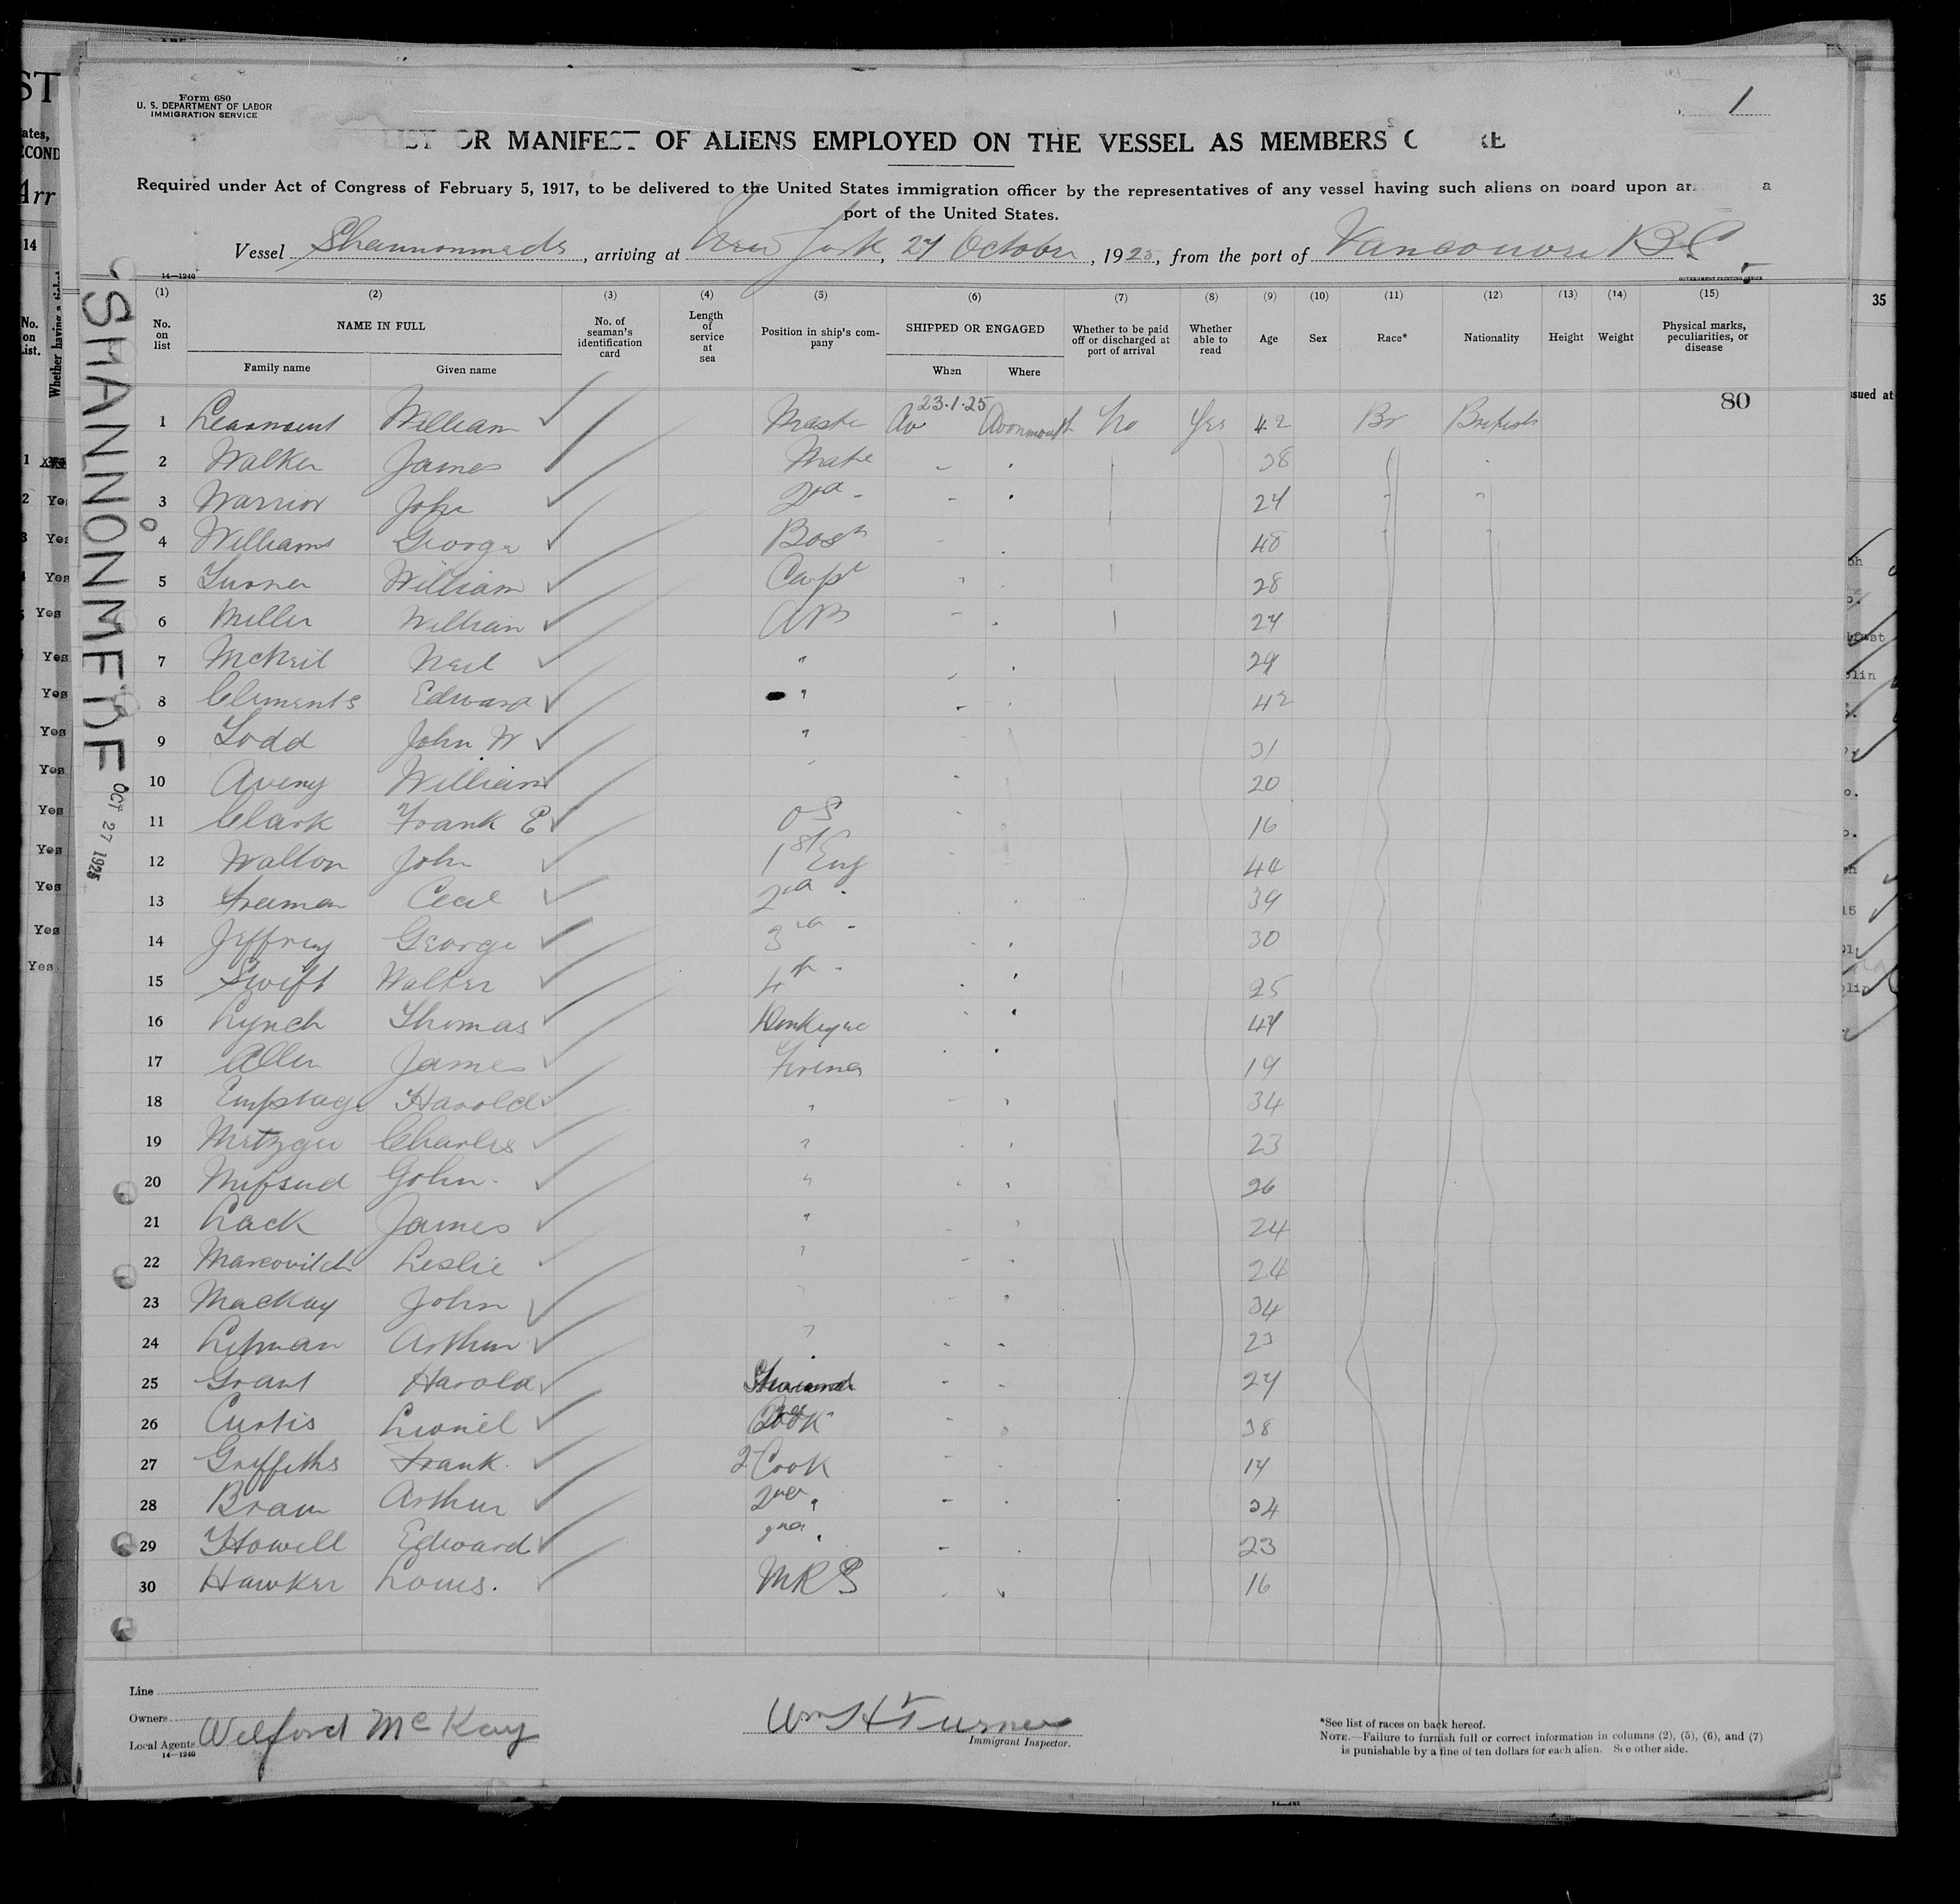 Form 680
U. S. DEPARTMENT OF LABOR
IMMIGRATION SERVICE
1
OR MANIFEST OF ALIENS EMPLOYED ON THE VESSEL AS MEMBERS
Required under Act of Congress of February 5, 1917, to be delivered to the United States immigration officer by the representatives of any vessel having such aliens on board upon a
port of the United States.
Vessel Shannonmede, arriving at New York, 27 October, 1925, from the port of Vancouver B.C.
14—1240 GOVERNMENT PRINTING OFFICE
(1) (2) (3) (4) (5) (6) (7) (8) (9) (10) (11) (12) (13) (14) (15)
No. on list NAME IN FULL No. of seaman's identification card Length of service at sea Position in ship's company SHIPPED OR ENGAGED Whether to be paid off or discharged at port of arrival Whether able to read Age Sex Race* Nationality Height Weight Physical marks, peculiarities, or disease
Family name Given name When Where
80
1 William Master 23.1.25 Avonmouth No Yes 42 Br British
2 Walker James Mate 38
3 Warrior John 2nd " 24
4 Williams George Bosn 48
5 Turner William Carpt 28
6 Miller William AB
7 McNeil Neil " 29
8 Clements Edward " 42
9 Todd John W " 31
10 Avery William 20
11 Clark Frank E OS 16
12 Walton John 1st Eng 44
13 Freeman Cecil 2nd " 39
14 Jeffrey George 3rd " 30
15 Swift Walter 4th " 25
16 Lynch Thomas 47
17 Allen James Firemen 19
18 Empstage Harold " 34
19 Metzger Charles " 23
20 Mifsud John " 26
21 Lack James " 24
22 Marcovitch Leslie " 24
23 Mackay John " 34
24 Arthur " 23
25 Grant Harold 27
26 Curtis Lionel Cook 38
27 Griffiths Frank 2 Cook
28 Arthur
29 Howell Edward 23
30 Hawker Louis. MRS 16
SHANNONMEDE
OCT 27 1925
Line
Owners
Local Agents Welford McKay
14—1240
Wm H Turner
Immigrant Inspector.
*See list of races on back hereof.
NOTE.—Failure to furnish full or correct information in columns (2), (5), (6), and (7)
is punishable by a fine of ten dollars for each alien. See other side.